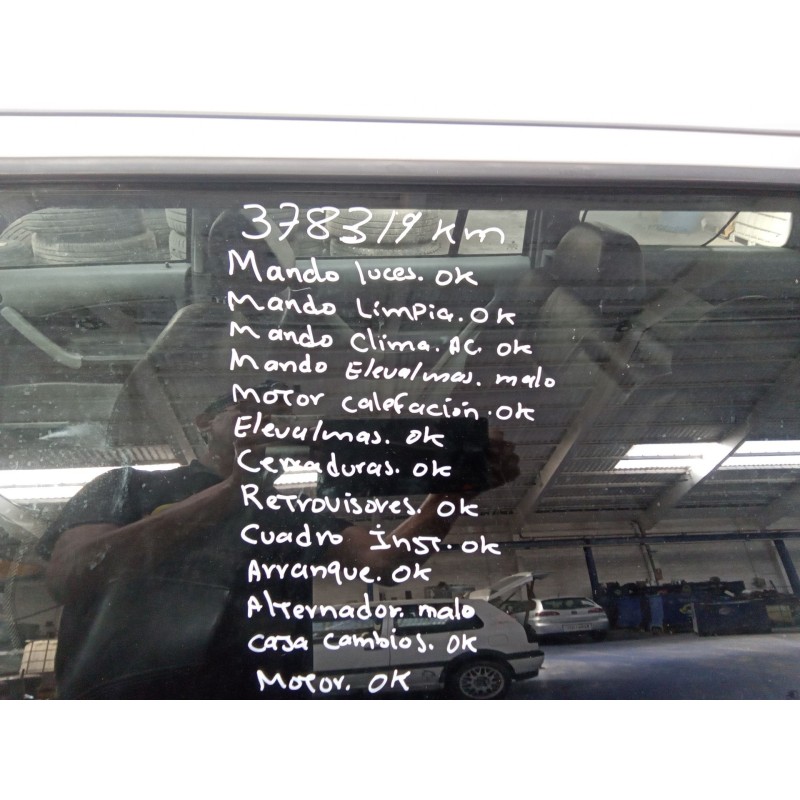 378319 km
Mando luces. OK
Mando Limpia. OK
Mando Clima. AC. OK
Mando Elevalunas. malo
Motor calefación. OK
Elevalunas. OK
Cerraduras. OK
Retrovisores. OK
Cuadro inst. OK
Arranque. OK
Alternador. malo
Casa cambios. OK
Motor. OK